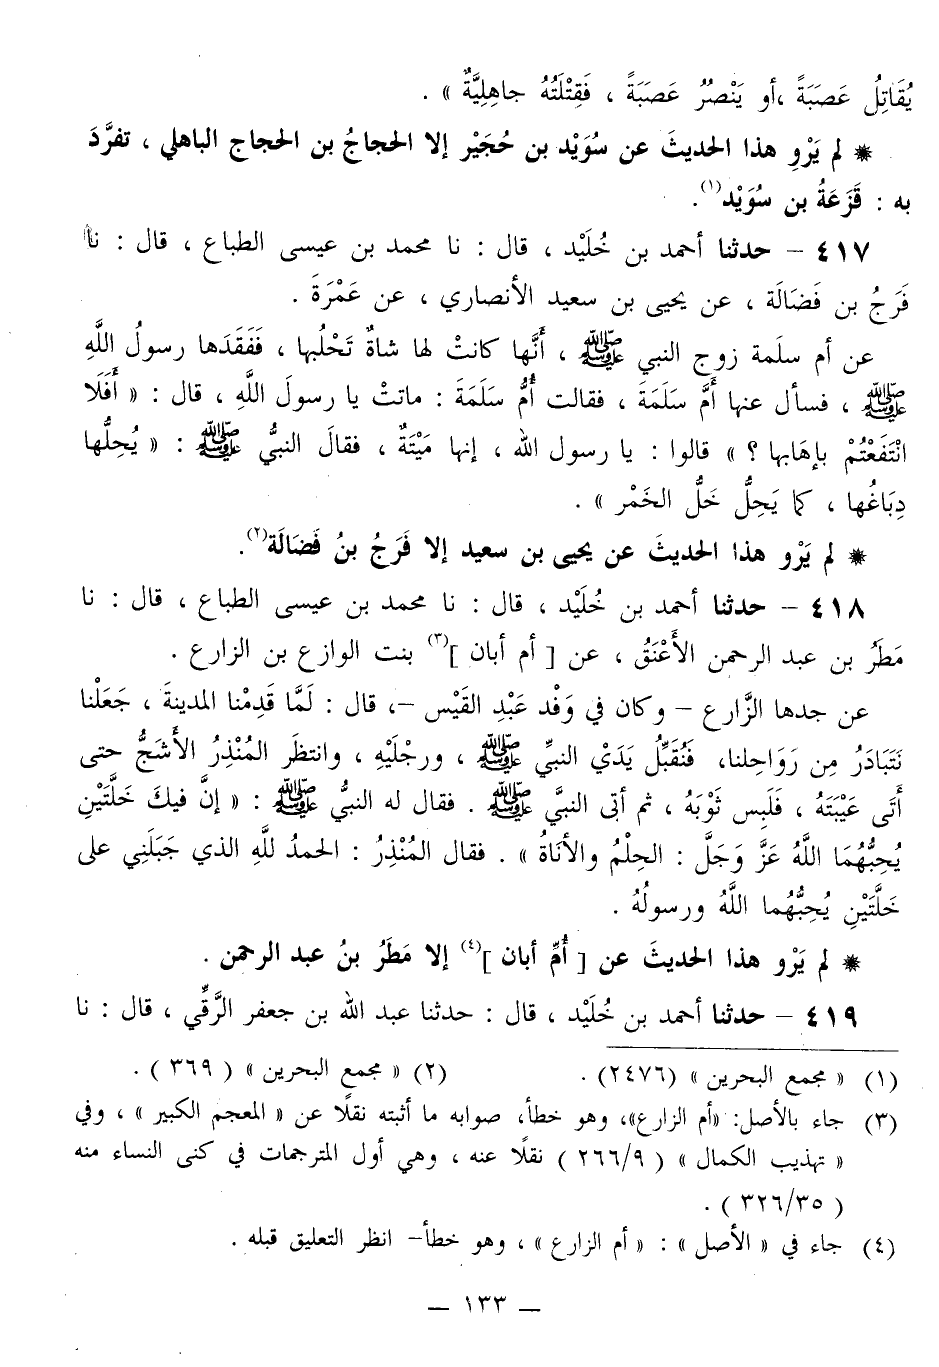 يُقَاتِلُ عَصَبَةً ،أو يَنْصُرُ عَصَبَةً ، فَقِتْلَتُهُ جاهِلِيَّةٌ » .
* لم يَرْوِ هذا الحديثَ عن سُوَيْد بن حُجَيْر إلا الحجاجُ بن الحجاج الباهلي ، تفرَّدَ
به : قَزَعَةُ بن سُوَيْد(١).
٤١٧ – حدثنا أحمد بن خُلَيْد ، قال : نا محمد بن عيسى الطباع ، قال : نا
فَرَجُ بن فَضَالَة ، عن يحيى بن سعيد الأنصاري ، عن عَمْرَةَ .
عن أم سلَمة زوج النبي ﷺ ، أَنَّها كانتْ لها شاةٌ تَحْلُبها ، فَفَقَدَها رسولُ اللَّهِ
ﷺ ، فسأل عنها أمَّ سَلَمَةَ ، فقالت أُمُّ سَلَمَةَ : ماتتْ يا رسولَ اللَّهِ ، قال : « أَفَلَا
انْتَفَعْتُمْ بإهَابها ؟ » قالوا : يا رسول الله ، إنها مَيْتَةٌ ، فقالَ النبيُّ ﷺ : « يُحِلُّها
دِبَاغُها ، كما يَحِلُّ خَلُّ الخَمْر » .
* لم يَرْو هذا الحديثَ عن يحيى بن سعيد إلا فَرَجُ بنُ فَضَالَة(٢).
٤١٨ – حدثنا أحمد بن خُلَيْد ، قال : نا محمد بن عيسى الطباع ، قال : نا
مَطَرُ بن عبد الرحمن الأَعْنَقُ ، عن [ أم أبان ](٣) بنت الوازع بن الزارع .
عن جدها الزَّارع – وكان في وَفْد عَبْدِ القَيْس –، قال : لَمَّا قَدِمْنا المدينةَ ، جَعَلْنا
نَتَبَادَرُ مِن رَوَاحِلنا، فَنُقَبِّلُ يَدَيْ النبيِّ ﷺ ، ورِجْلَيْهِ ، وانتظَر المُنْذِرُ الأشَجُّ حتى
أَتَى عَيْبَتَهُ ، فَلَبِس ثَوْبَهُ ، ثم أتى النبيَّ ﷺ . فقال له النبيُّ ﷺ : « إنَّ فيكَ خَلَّتَيْنِ
يُحِبُّهُمَا اللَّهُ عَزَّ وَجَلَّ : الحِلْمُ والأنَاةُ » . فقال المُنْذِرُ : الحمدُ للَّهِ الذي جَبَلَنِي على
خَلَّتَيْنِ يُحِبُّهُما اللَّهُ ورسولُهُ .
* لم يَرْو هذا الحديثَ عن [ أُمِّ أبان ](٤) إلا مَطَرُ بنُ عبد الرحمن .
٤١٩ – حدثنا أحمد بن خُلَيْد ، قال : حدثنا عبد الله بن جعفر الرَّقِّي ، قال : نا
(١) « مجمع البحرين » (٢٤٧٦) . (٢) « مجمع البحرين » ( ٣٦٩ ) .
(٣) جاء بالأصل: «أم الزارع»، وهو خطأ، صوابه ما أثبته نقلًا عن « المعجم الكبير » ، وفي
« تهذيب الكمال » ( ٢٦٦/٩ ) نقلًا عنه ، وهي أول المترجمات في كنى النساء منه
( ٣٢٦/٣٥ ) .
(٤) جاء في « الأصل » : « أم الزارع » ، وهو خطأ– انظر التعليق قبله .
– ١٣٣ –